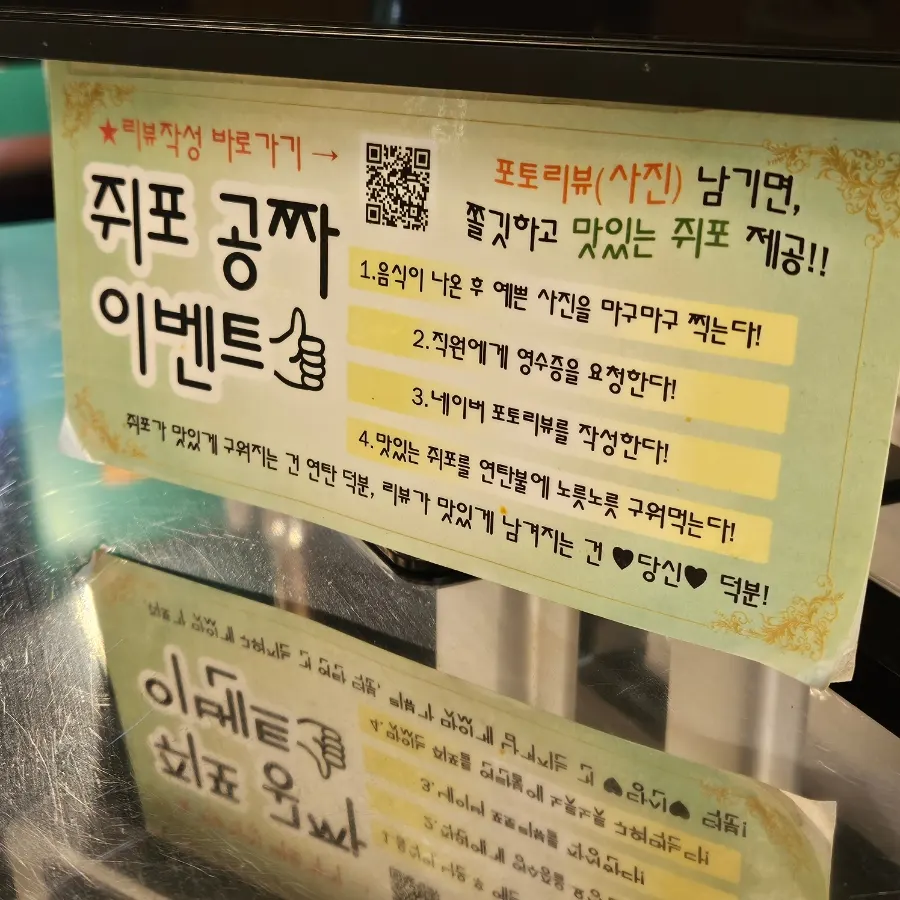 ★리뷰작성 바로가기 →
쥐포 공짜
이벤트
포토리뷰(사진) 남기면,
쫄깃하고 맛있는 쥐포 제공!!
1.음식이 나온 후 예쁜 사진을 마구마구 찍는다!
2.직원에게 영수증을 요청한다!
3.네이버 포토리뷰를 작성한다!
4.맛있는 쥐포를 연탄불에 노릇노릇 구워먹는다!
쥐포가 맛있게 구워지는 건 연탄 덕분, 리뷰가 맛있게 남겨지는 건 ♥당신♥ 덕분!